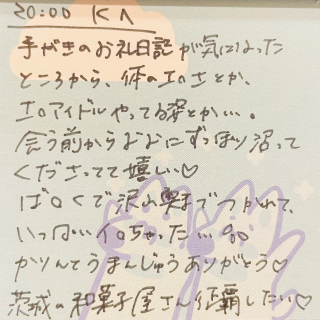 20:00 K∧
手がきのお礼日記が気になった
ところから、体のエロさとか、
エロアイドルやってる姿とか…。
会う前からなおにずっぽり沼って
くださってて嬉しい♡
ばロくで沢山奥までつかれて、
いっぱいイロちゃった…
かりんとうまんじゅうありがとう♡
茨城の和菓子屋さん制覇したい♡